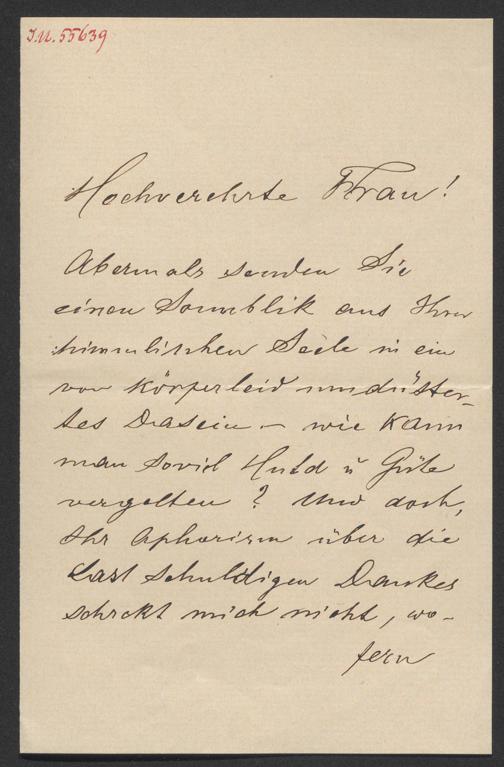 I.N. 55639
Hochverehrte Frau!
Abermals senden Sie
einen Sonnblik aus Ihrer
himmlischen Seele in ein
von Körperleid umdüster-
tes Dasein – wie kann
man soviel Huld u Güte
vergelten? Und doch,
Ihr Aphorism über die
Last schuldigen Dankes
schrekt mich nicht, wo-
fern